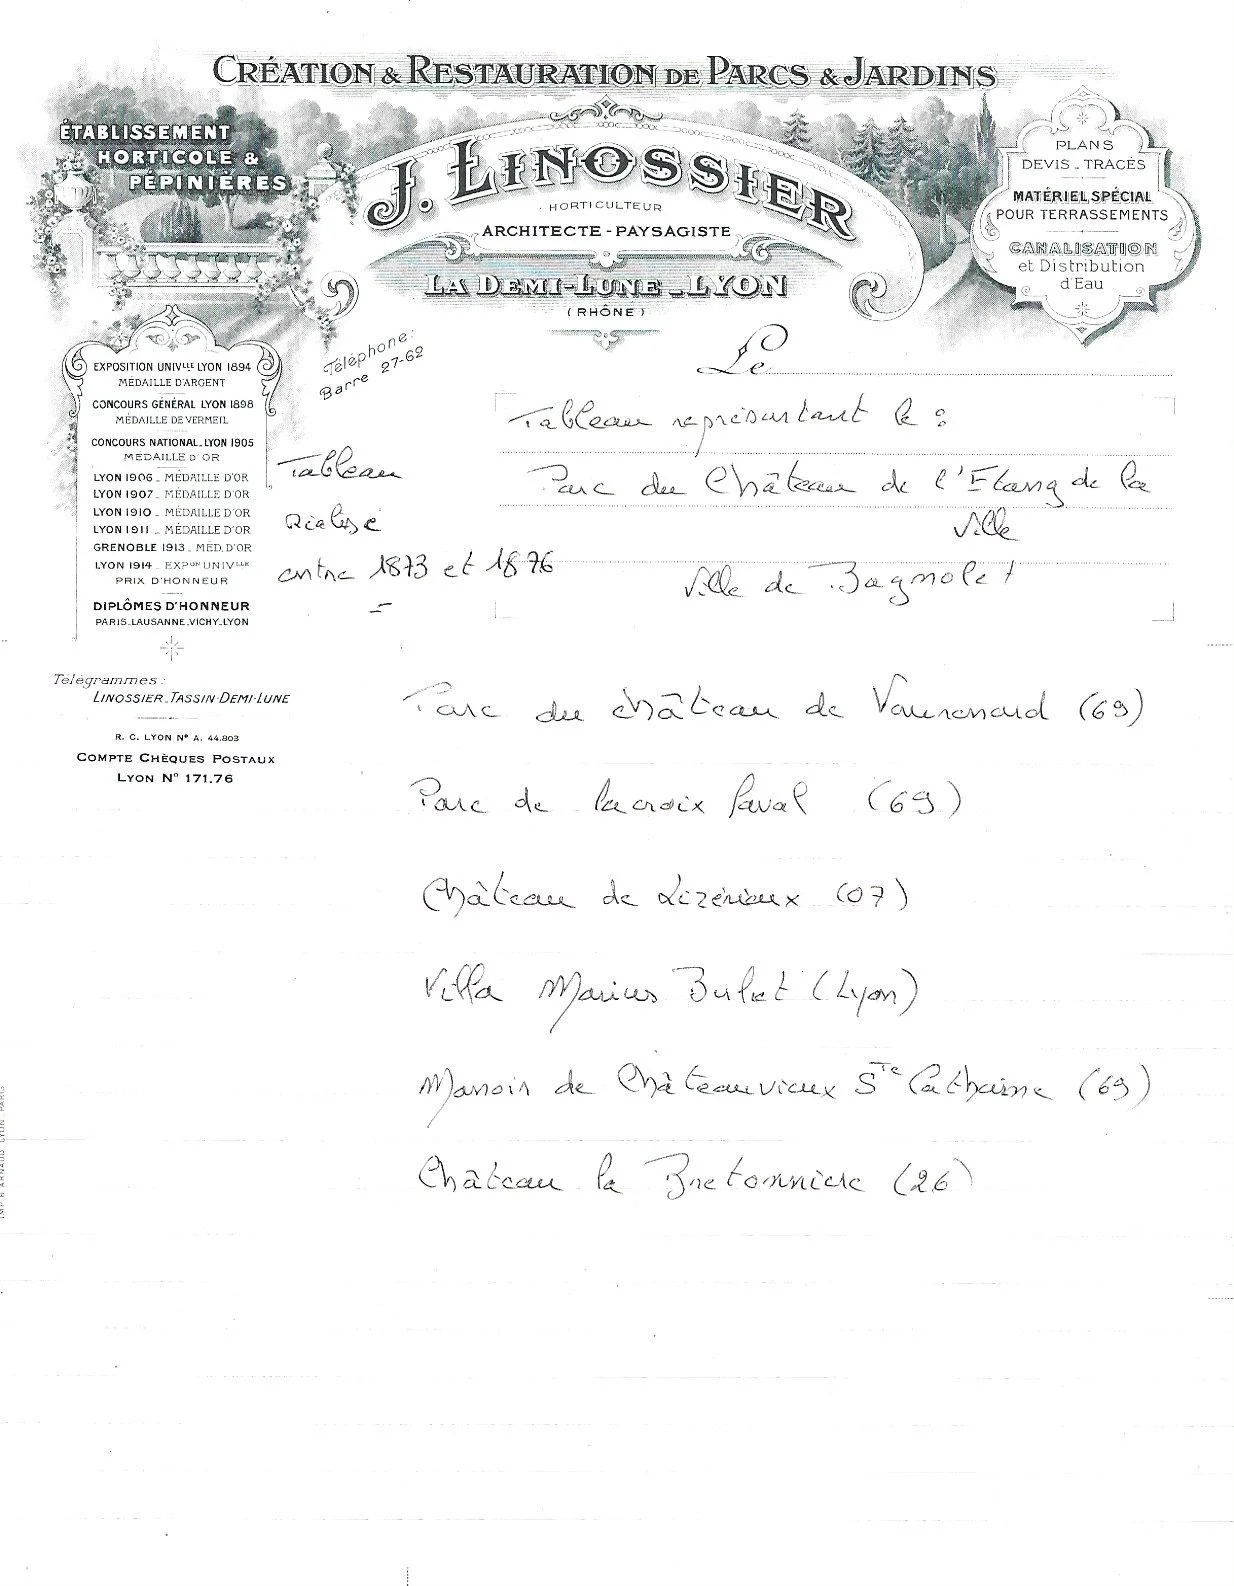 CRÉATION & RESTAURATION DE PARCS & JARDINS
ÉTABLISSEMENT
HORTICOLE &
PÉPINIÈRES
J. LINOSSIER
HORTICULTEUR
ARCHITECTE - PAYSAGISTE
LA DEMI-LUNE - LYON
(RHÔNE)
PLANS
DEVIS - TRACÉS
MATÉRIEL SPÉCIAL
POUR TERRASSEMENTS
CANALISATION
et Distribution
d'Eau
Téléphone:
Barre 27-62
Le
EXPOSITION UNIVLLE LYON 1894
MÉDAILLE D'ARGENT
CONCOURS GÉNÉRAL LYON 1898
MÉDAILLE DE VERMEIL
CONCOURS NATIONAL - LYON 1905
MÉDAILLE D'OR
LYON 1906 - MÉDAILLE D'OR
LYON 1907 - MÉDAILLE D'OR
LYON 1910 - MÉDAILLE D'OR
LYON 1911 - MÉDAILLE D'OR
GRENOBLE 1913 - MÉD. D'OR
LYON 1914 - EXPON UNIVLLE
PRIX D'HONNEUR
DIPLÔMES D'HONNEUR
PARIS-LAUSANNE-VICHY-LYON
Télégrammes :
LINOSSIER-TASSIN-DEMI-LUNE
R. C. LYON N° A. 44.803
COMPTE CHÈQUES POSTAUX
LYON N° 171.76
Tableau
Réalisé
entre 1873 et 1876
Tableau représentant le :
Parc du Château de l'Etang de la
Ville
Ville de Bagnolet
Parc du château de Vaurenard (69)
Parc de Lacroix Laval (69)
Château de Lizérieux (07)
Villa Marius Bulet (Lyon)
Manoir de Châteauvieux Ste Catherine (69)
Château la Bretonnière (26)